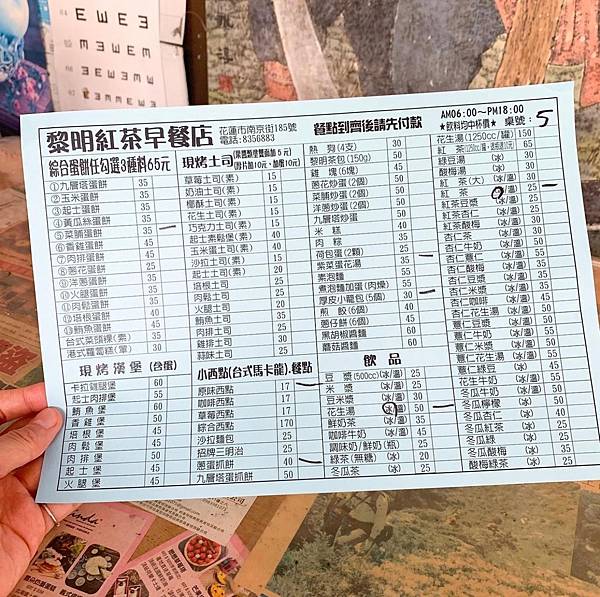 黎明紅茶早餐店
花蓮市南京街185號
電話:8356883
餐點到齊後請先付款
AM06:00～PM18:00
★飲料均中杯價★ 桌號: 5
綜合蛋餅任勾選3種料65元
①九層塔蛋餅 35
②玉米蛋餅 35
③起士蛋餅 35
④黃瓜絲蛋餅 35
⑤菜脯蛋餅 35
⑥香雞蛋餅 45
⑦肉排蛋餅 45
⑧蔥花蛋餅 25
⑨洋蔥蛋餅
⑩火腿蛋餅 35
⑪肉鬆蛋餅 35
⑫培根蛋餅
⑬鮪魚蛋餅 45
台式菜頭粿(素) 35
港式蘿蔔糕(葷) 30
現烤土司
草莓土司(素) 15
奶油土司(素) 15
椰酥土司(素) 15
花生土司(素) 15
巧克力土司(素) 15
起士素鬆堡(素) 40
玉米蛋土司(素) 30
沙拉土司(素) 15
起士土司(素) 20
培根土司
肉鬆土司
火腿土司
鮪魚土司
肉排土司
雞排土司
蒜味土司 25
熱狗(4支) 30
黎明茶包(150g) 50
雞塊(6塊) 45
蔥花炒蛋(2個) 35
菜脯炒蛋(2個) 45
洋蔥炒蛋(2個) 45
九層塔炒蛋 45
米糕 40
肉粽 35
荷包蛋(2顆) 25
紫菜蛋花湯 35
素泡麵
煮泡麵加蛋(肉燥) 55
厚皮小籠包(5個) 30
煎餃(6個) 40
蔥仔餅(6個) 40
黑胡椒醬麵 60
蘑菇醬麵 60
花生湯(1250cc/罐) 150
綠豆湯 (冰) 30
酸梅湯 (冰) 30
紅茶(大) (冰/溫) 30
紅茶
紅茶豆漿 (冰/溫)
紅茶杏仁 (冰/溫)
紅茶牛奶 (冰/溫)
杏仁茶 (冰/溫)
杏仁牛奶 (冰/溫)
杏仁薏仁 (冰/溫)
杏仁酸梅 (冰)
杏仁豆漿 (冰/溫)
杏仁米漿 (冰/溫)
杏仁咖啡 (冰/溫)
杏仁花生湯 (冰/溫)
薏仁豆漿 (冰/溫)
薏仁牛奶 (冰/溫)
薏仁米漿 (冰/溫)
薏仁花生湯 (冰/溫) 55
薏仁綠豆 (冰) 45
花生牛奶 (冰/溫) 55
冬瓜牛奶 (冰/溫) 45
冬瓜檸檬 (冰) 50
冬瓜杏仁 (冰) 40
冬瓜紅茶 (冰) 25
冬瓜綠 (冰) 25
冬瓜酸梅 (冰) 35
酸梅綠茶 (冰) 25
現烤漢堡(含蛋)
卡拉雞腿堡 60
起士肉排堡 55
鮪魚堡 60
香雞堡 50
培根堡 45
肉鬆堡 45
肉排堡 50
起士堡 45
火腿堡 45
小西點(台式馬卡龍).餐點
原味西點 17
咖啡西點 17
草莓西點 17
綜合西點 170
沙拉麵包 25
招牌三明治 25
蔥蛋抓餅 50
九層塔蛋抓餅 50
飲品
豆漿(500cc)(冰/溫) 25
米漿 (冰/溫) 25
豆米漿 (冰/溫) 30
花生湯 (冰/溫) 50
鮮奶茶 (冰/溫) 35
咖啡牛奶 (冰/溫) 45
調味奶/鮮奶(瓶) 25
綠茶(無糖) (冰) 20
冬瓜茶 (冰) 25